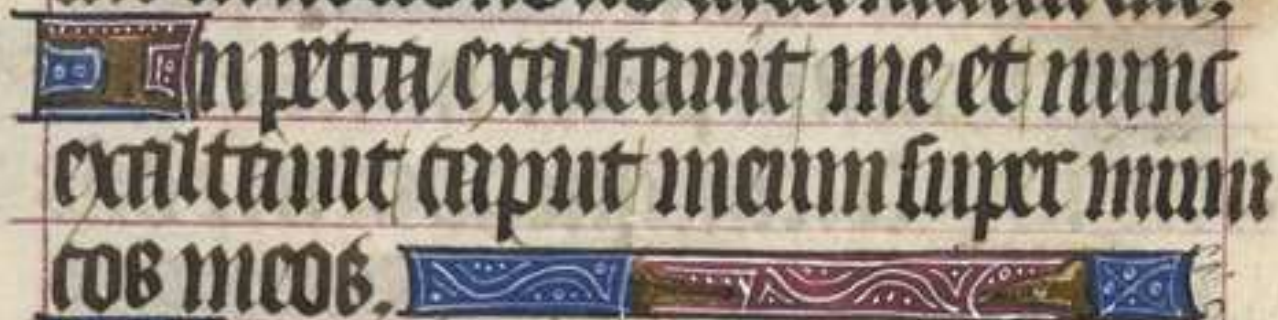 In petra exaltauit me et nunc
exaltauit caput meum super inimi
cos meos.